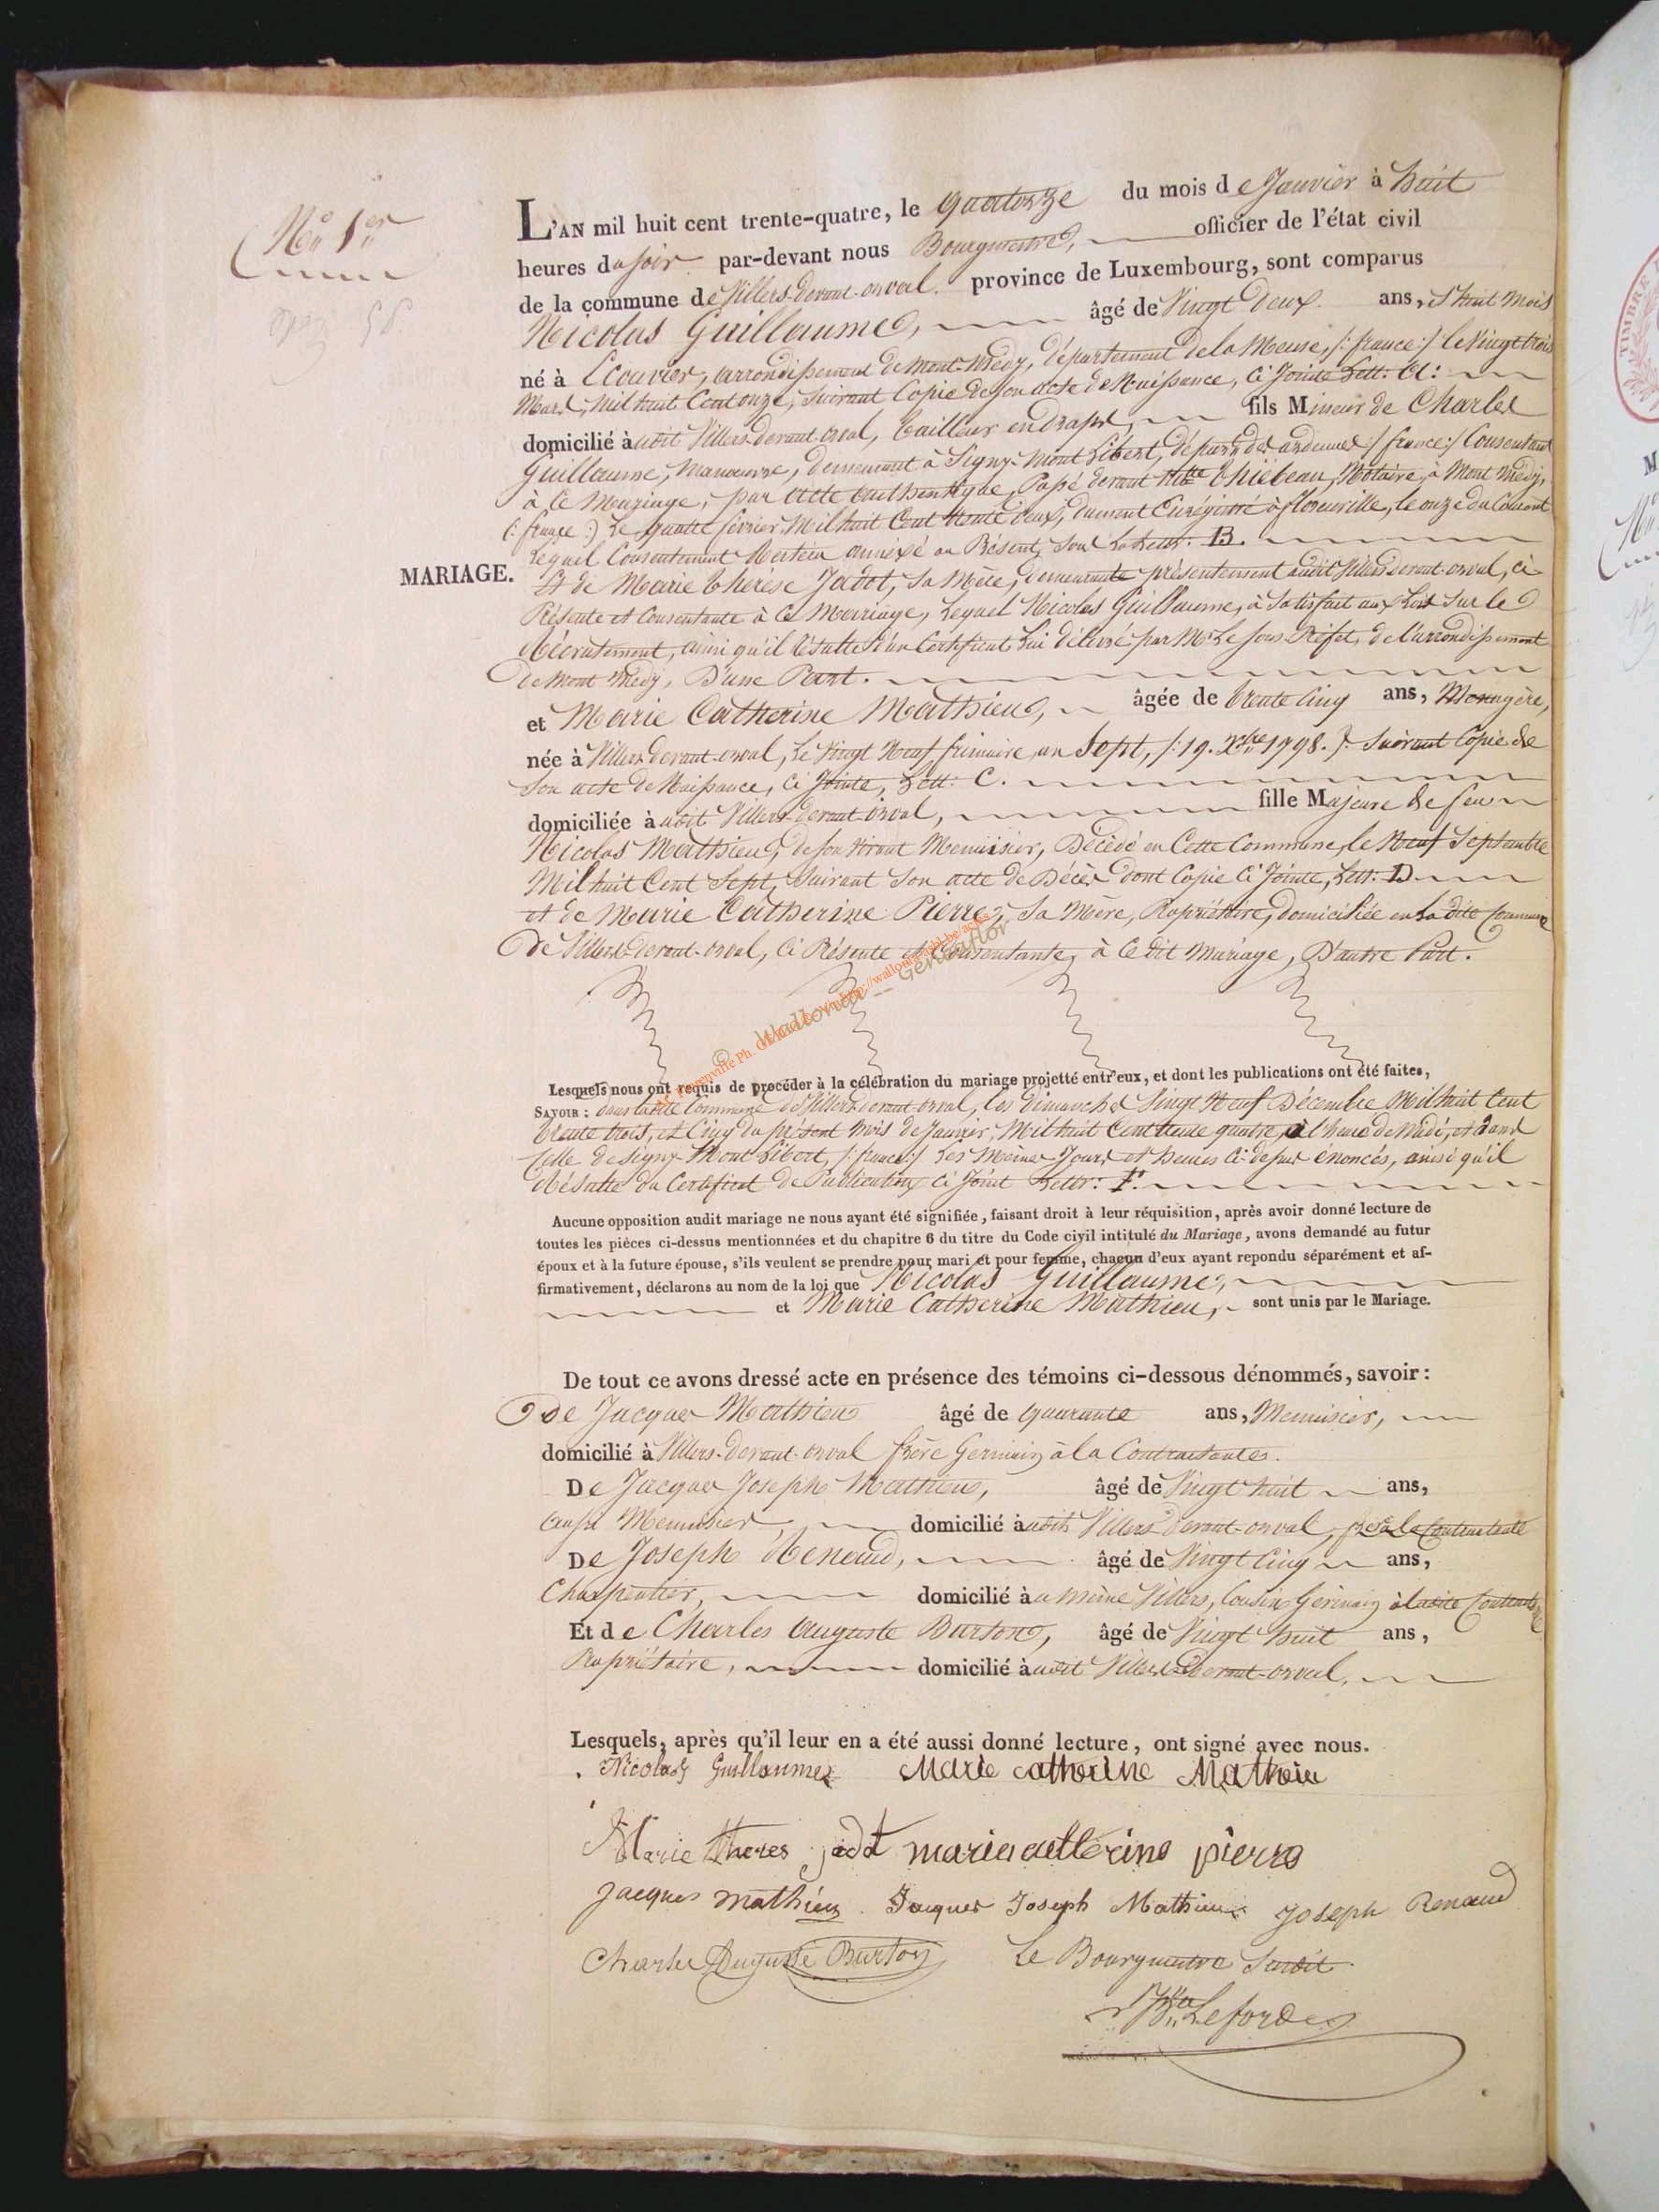 N.º 1.er
L'AN mil huit cent trente-quatre, le quatorze du mois de Janvier à huit
heures du soir par-devant nous Bourgmestre, officier de l'état civil
de la commune de Villers-devant-orval. province de Luxembourg, sont comparus
Nicolas Guillaume, âgé de Vingt Deux ans, et huit mois
né à Ecouvier, arrondissement de Mont-médy, département de la Meuse, /: france :/ le Vingt trois
Mars, Mil huit Cent onze, suivant Copie de son acte de Naissance, ci Jointe Lett: A:
domicilié à udit Villers-devant orval, tailleur en draps, fils Mineur de Charles
Guillaume, Manœuvre, demeurant à Signy-Mont Libert, départ. des ardennes /: france :/ Consentant
à Ce Mariage, par acte authentique, Passé devant Thiebeau, Notaire, à Mont Médy,
(: france :) Le quatre février Mil huit Cent trente deux, dument Enrégistré à florenville, le onze du Courant
Lequel Consentement Restera annéxé au Présent, sous La Lettr: B.
MARIAGE.
Et de Marie thérèse Jadot, sa Mère, demeurante présentement audit Villers devant-orval, ci-
Présente et Consentante à Ce Mariage, Lequel Nicolas Guillaume, à Satisfait aux Lois sur le
Récrutement, ainsi qu'il Résulte d'un Certificat Lui délivré par Mr Le sous Préfet, de l'arrondissement
de Mont Médy, D'une Part.
et Marie Catherine Mathieu, âgée de trente Cinq ans, Menagère,
née à Villers devant-orval, Le Vingt Neuf frimaire, an Sept, /: 19. Xbre 1798. :/ Suivant Copie de
Son acte de Naissance, Ci Jointe, Lett: C.
domiciliée à udit Villers-devant orval, fille Majeure de feu
Nicolas Mathieu, de son vivant Menuisier, Décédé en Cette Commune, le Neuf Septembre
Mil huit Cent Sept, Suivant Son acte de Décès dont Copie Ci Jointe, Lett: D.
et de Marie Catherine Pierre, Sa Mère, Propriétaire, domiciliée en La dite Commune
de Villers-devant-orval, Ci Présente et Consentante, à Ce dit Mariage, D'autre Part.
© Wallonia -- Geneaflor
Lesquels nous ont requis de procéder à la célébration du mariage projetté entr'eux, et dont les publications ont été faites,
SAVOIR : dans la dite Commune de Villers-devant orval, les dimanches Vingt Neuf Décembre Mil huit Cent
trente trois, et Cinq du présent Mois de Janvier, Mil huit Cent trente quatre, à l'heure de Midi, et dans
Celle de Signy-Mont Libert, /: france :/ Les Mêmes Jours et heures Ci-dessus énoncés, ainsi qu'il
Résulte du Certificat de Publication Ci Joint Lettr: F.
Aucune opposition audit mariage ne nous ayant été signifiée, faisant droit à leur réquisition, après avoir donné lecture de
toutes les pièces ci-dessus mentionnées et du chapitre 6 du titre du Code civil intitulé du Mariage, avons demandé au futur
époux et à la future épouse, s'ils veulent se prendre pour mari et pour femme, chacun d'eux ayant repondu séparément et af-
firmativement, déclarons au nom de la loi que Nicolas Guillaume,
et Marie Catherine Mathieu, sont unis par le Mariage.
De tout ce avons dressé acte en présence des témoins ci-dessous dénommés, savoir :
de Jacques Mathieu âgé de quarante ans, Menuisier,
domicilié à Villers-devant-orval frère Germain à la Contractante.
De Jacques Joseph Mathieu, âgé de Vingt huit ans,
aussi Menuisier, domicilié à udit Villers devant-orval, frère à la Contractante
De Joseph Renaud, âgé de Vingt Cinq ans,
Charpentier, domicilié à u même Villers, Cousin Germain à la dite Contractante
Et de Charles auguste Burton, âgé de Vingt huit ans,
Propriétaire, domicilié à udit Villers-devant-orval,
Lesquels, après qu'il leur en a été aussi donné lecture, ont signé avec nous.
Nicolas Guillaume Marie catherine Mathieu
Marie theres jadot maria catterine pierre
Jacques mathieu Jacques Joseph Mathieu Joseph Renaud
Charles Auguste Burton Le Bourgmestre Susdit
Leforde
TIMBRE